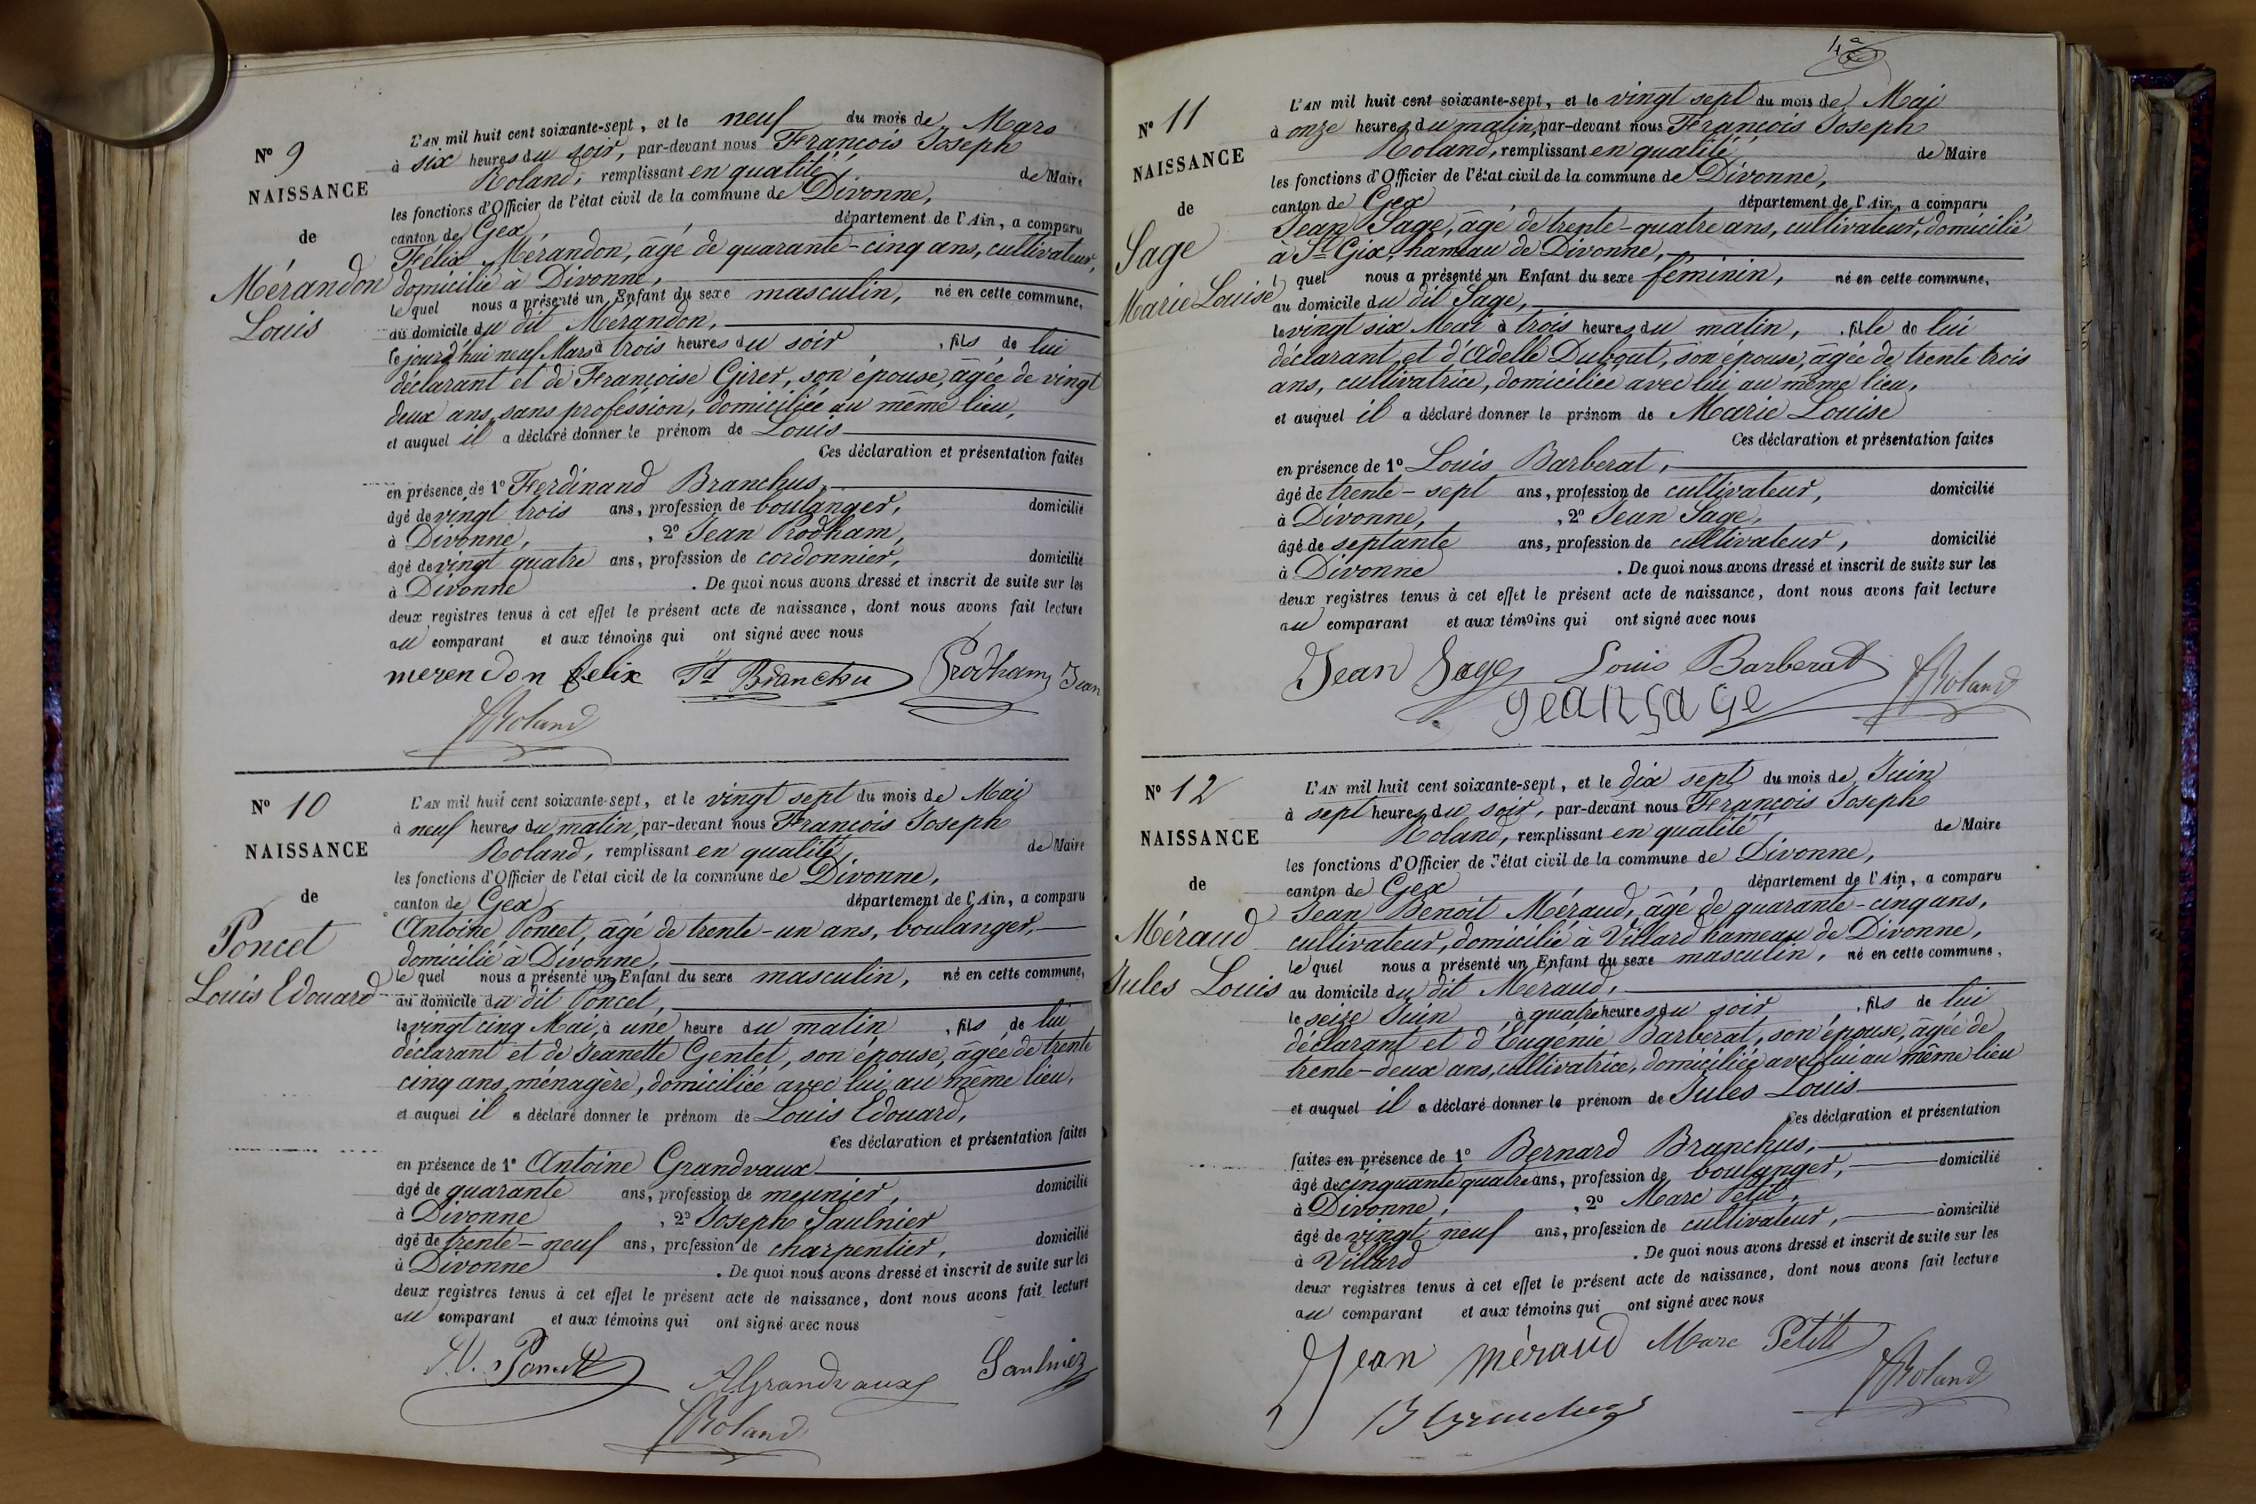 Nº 9
NAISSANCE
de
Mérandon
Louis
L'AN mil huit cent soixante-sept, et le neuf du mois de Mars
à six heures du soir, par-devant nous François Joseph
Roland, remplissant en qualité de Maire
les fonctions d'Officier de l'état civil de la commune de Divonne,
canton de Gex, département de l'Ain, a comparu
Félix Mérandon, âgé de quarante-cinq ans, cultivateur,
domicilié à Divonne,
lequel nous a présenté un Enfant du sexe masculin, né en cette commune,
au domicile du dit Mérandon,
le jourd'hui neuf Mars à trois heures du soir, fils de lui
déclarant et de Françoise Girer, son épouse, âgée de vingt
deux ans, sans profession, domiciliée au même lieu,
et auquel il a déclaré donner le prénom de Louis
Ces déclaration et présentation faites
en présence de 1º Ferdinand Branchus,
âgé de vingt trois ans, profession de boulanger, domicilié
à Divonne, , 2º Jean Prodham,
âgé de vingt quatre ans, profession de cordonnier, domicilié
à Divonne . De quoi nous avons dressé et inscrit de suite sur les
deux registres tenus à cet effet le présent acte de naissance, dont nous avons fait lecture
au comparant et aux témoins qui ont signé avec nous
merendon felix Fd Branchu Prodham Jean
Roland
Nº 10
NAISSANCE
de
Poncet
Louis Edouard
L'AN mil huit cent soixante-sept, et le vingt sept du mois de Mai
à neuf heures du matin, par-devant nous François Joseph
Roland, remplissant en qualité de Maire
les fonctions d'Officier de l'état civil de la commune de Divonne,
canton de Gex, département de l'Ain, a comparu
Antoine Poncet, âgé de trente-un ans, boulanger,
domicilié à Divonne,
lequel nous a présenté un Enfant du sexe masculin, né en cette commune,
au domicile du dit Poncet,
le vingt cinq Mai, à une heure du matin, fils de lui
déclarant et de Jeanette Gentet, son épouse, âgée de trente
cinq ans, ménagère, domiciliée avec lui au même lieu,
et auquel il a déclaré donner le prénom de Louis Edouard,
Ces déclaration et présentation faites
en présence de 1º Antoine Grandvaux
âgé de quarante ans, profession de meunier, domicilié
à Divonne , 2º Joseph Saulnier
âgé de trente-neuf ans, profession de charpentier, domicilié
à Divonne . De quoi nous avons dressé et inscrit de suite sur les
deux registres tenus à cet effet le présent acte de naissance, dont nous avons fait lecture
au comparant et aux témoins qui ont signé avec nous
Poncet AGrandvaux Saulniez
Roland
Nº 11
NAISSANCE
de
Sage
Marie Louise
L'AN mil huit cent soixante-sept, et le vingt sept du mois de Mai
à onze heures du matin, par-devant nous François Joseph
Roland, remplissant en qualité de Maire
les fonctions d'Officier de l'état civil de la commune de Divonne,
canton de Gex département de l'Ain, a comparu
Jean Sage, âgé de trente-quatre ans, cultivateur, domicilié
à St Gix, hameau de Divonne,
lequel nous a présenté un Enfant du sexe féminin, né en cette commune,
au domicile du dit Sage,
le vingt six Mai à trois heures du matin, fille de lui
déclarant et d'Adelle Dubout, son épouse, âgée de trente trois
ans, cultivatrice, domiciliée avec lui au même lieu,
et auquel il a déclaré donner le prénom de Marie Louise
Ces déclaration et présentation faites
en présence de 1º Louis Barberat,
âgé de trente-sept ans, profession de cultivateur, domicilié
à Divonne, , 2º Jean Sage,
âgé de septante ans, profession de cultivateur, domicilié
à Divonne . De quoi nous avons dressé et inscrit de suite sur les
deux registres tenus à cet effet le présent acte de naissance, dont nous avons fait lecture
au comparant et aux témoins qui ont signé avec nous
Jean Sage Louis Barberat Roland
jean sage
Nº 12
NAISSANCE
de
Méraud
Jules Louis
L'AN mil huit cent soixante-sept, et le dix sept du mois de Juin
à sept heures du soir, par-devant nous François Joseph
Roland, remplissant en qualité de Maire
les fonctions d'Officier de l'état civil de la commune de Divonne,
canton de Gex département de l'Ain, a comparu
Jean Benoit Méraud, âgé de quarante-cinq ans,
cultivateur, domicilié à Villard hameau de Divonne,
lequel nous a présenté un Enfant du sexe masculin, né en cette commune,
au domicile du dit Méraud,
le seize Juin à quatre heures du soir, fils de lui
déclarant et d'Eugénie Barberat, son épouse, âgée de
trente-deux ans, cultivatrice, domiciliée avec lui au même lieu
et auquel il a déclaré donner le prénom de Jules Louis
Ces déclaration et présentation
faites en présence de 1º Bernard Branchus,
âgé de cinquante quatre ans, profession de boulanger, domicilié
à Divonne, , 2º Marc Petit,
âgé de vingt neuf ans, profession de cultivateur, domicilié
à Villard . De quoi nous avons dressé et inscrit de suite sur les
deux registres tenus à cet effet le présent acte de naissance, dont nous avons fait lecture
au comparant et aux témoins qui ont signé avec nous
Jean Méraud Marc Petit Roland